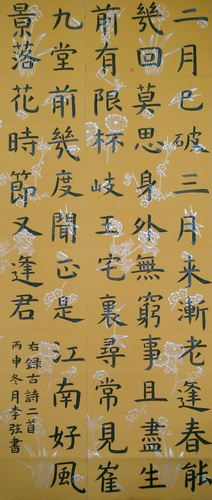 二月已破三月來漸老逢春能
幾回莫思身外無窮事且盡生
前有限杯岐王宅裏尋常見崔
九堂前幾度聞正是江南好風
景落花時節又逢君
右錄古詩二首
丙申冬月李弦書